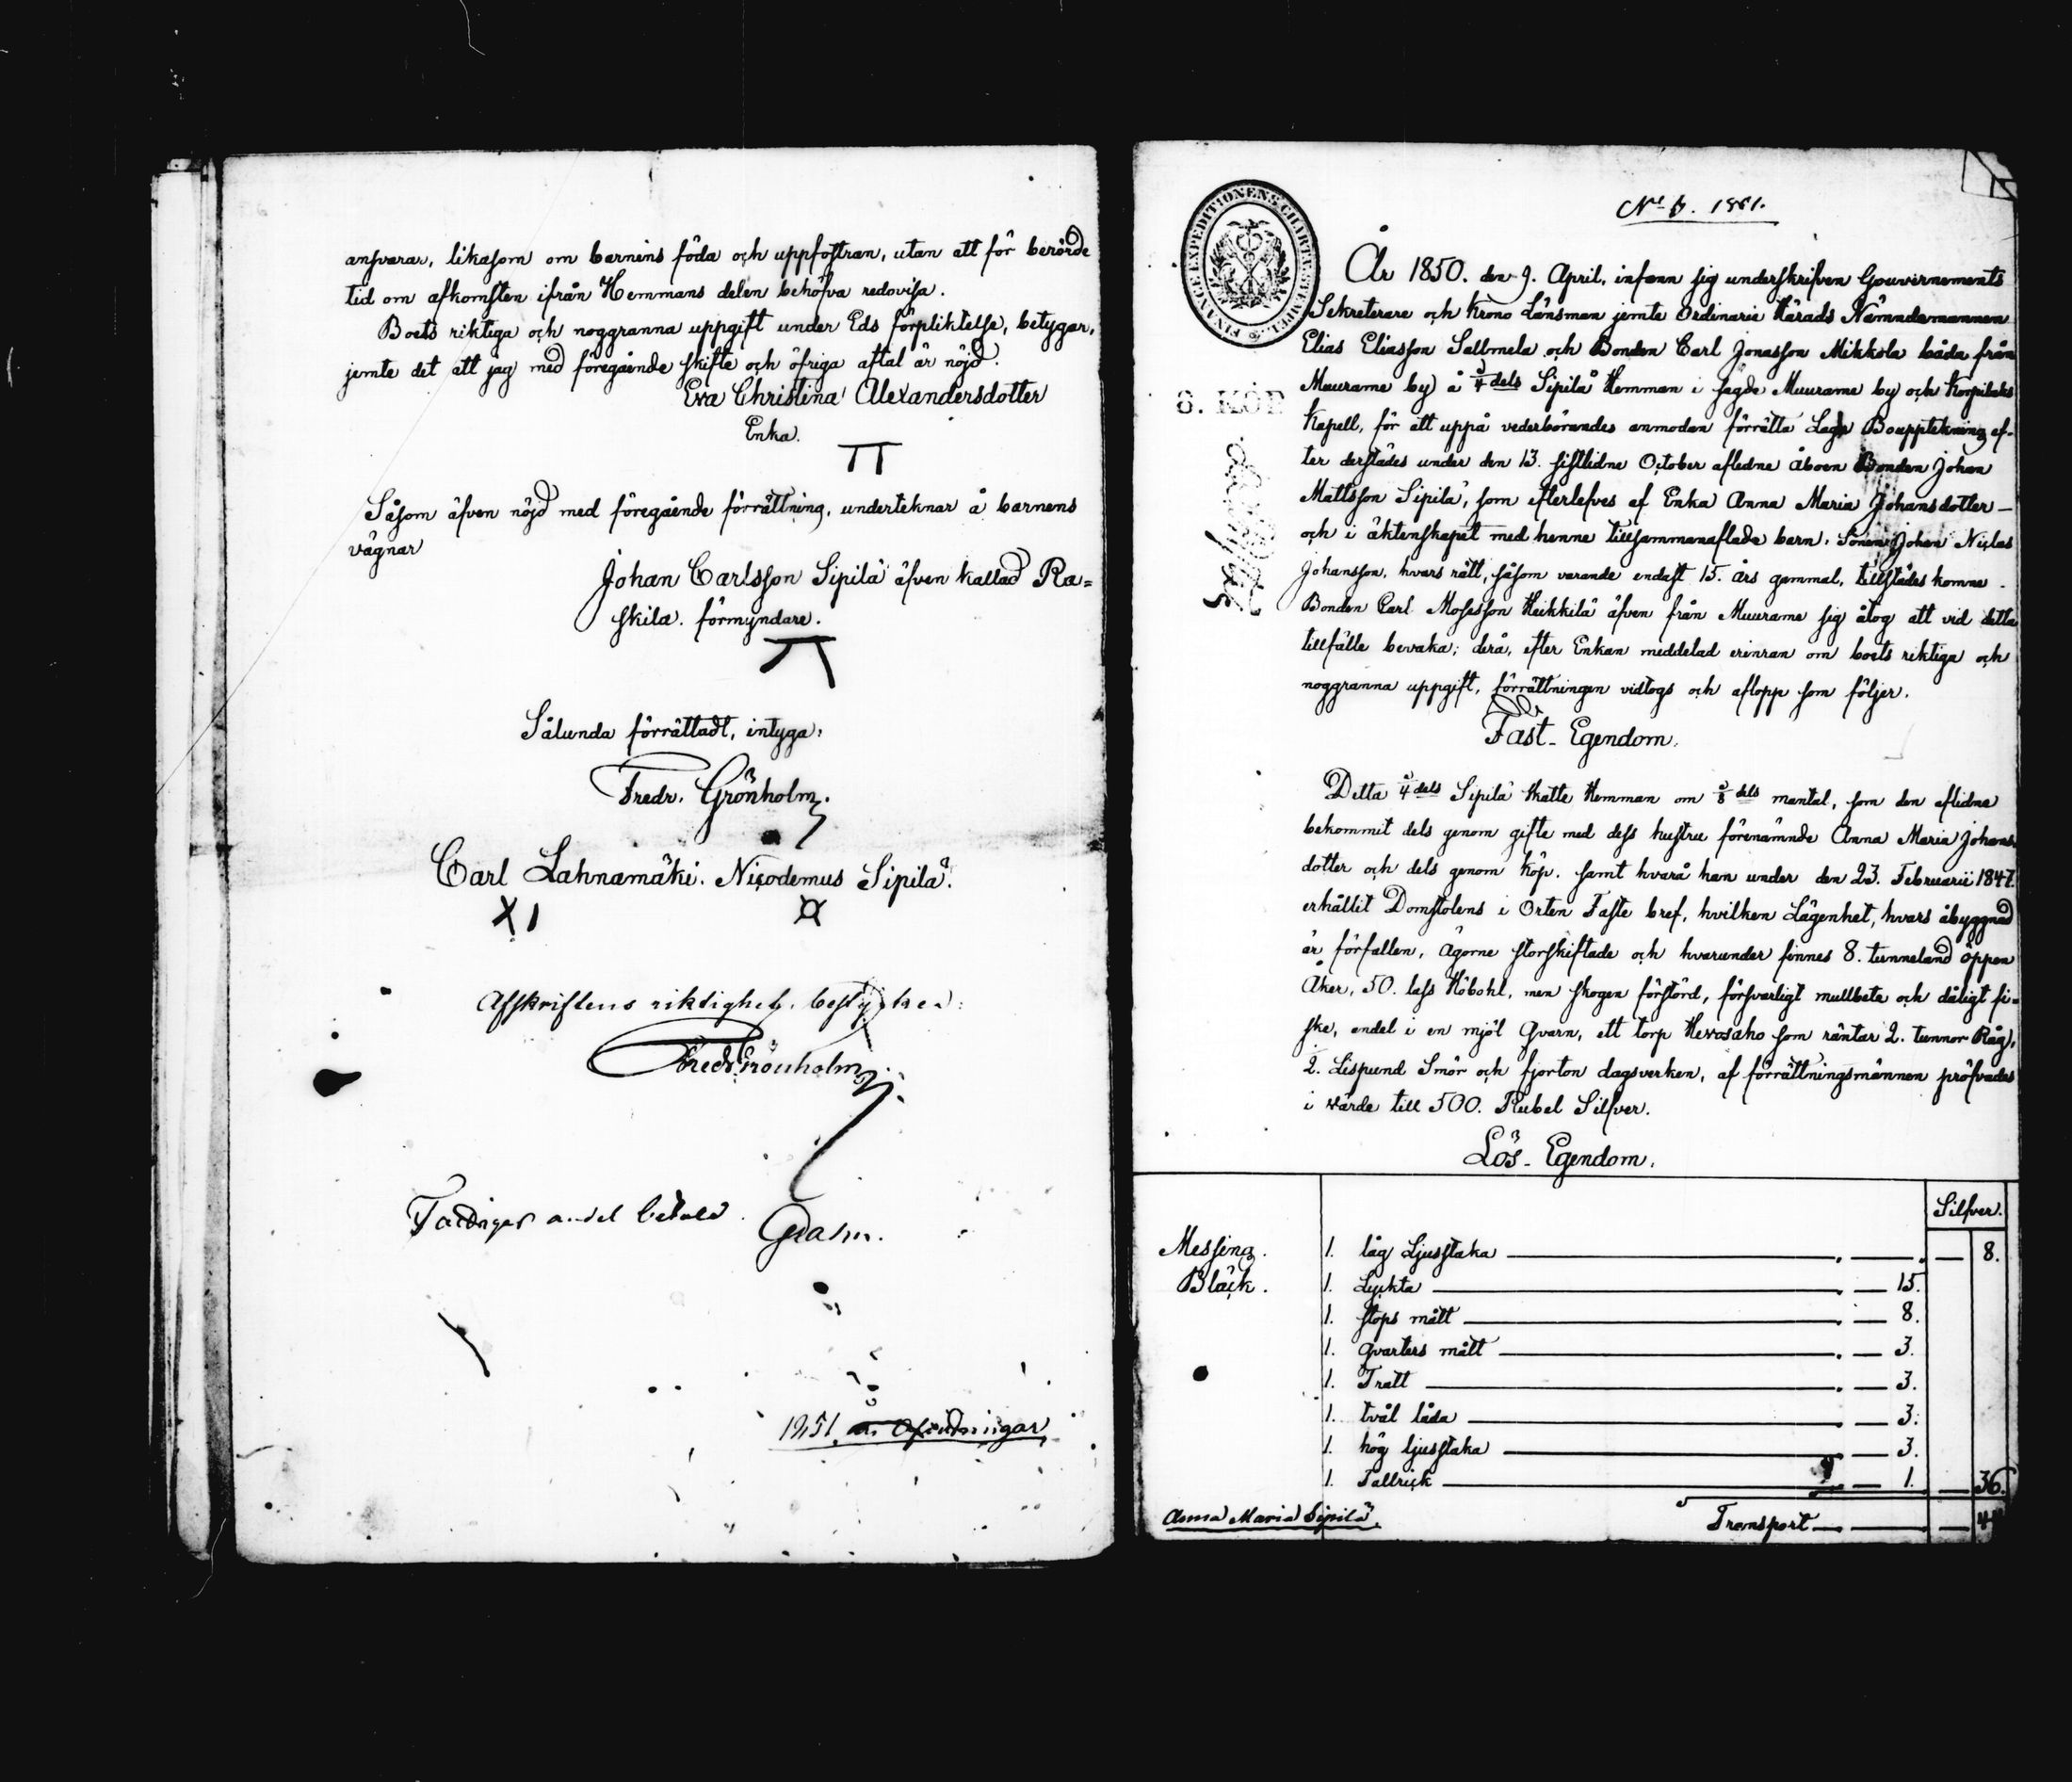 ansvarar, likasom om barnens föda och uppfostran, utan att för berörde
tid om afkomsten ifrån Hemmans delen behöfva redovisa.
Boets riktiga och noggranna uppgift under Eds förpliktelse, betygar,
jemte det att jag med föregående skifte och öfriga aftal är nöjd.
Eva Christina Alexandersdotter
Enka.
Såsom äfven nöjd med föregående förrättning, underteknar å barnens
vägnar
Johan Carlsson Sipilä äfven kallad Ra=
skila. förmyndare.
Sålunda förrättadt, intyga:
Fredr. Grönholm.
Carl Lahnamäki. Nicodemus Sipilä.
Afskriftens riktighet, bestyrker:
Fredr. Grönholm
Fattigas andel betald.
1851
FINANCE EXPEDITIONENS CHARTÆ
8. KOP
No 1851.
År 1850. den 9. April, infann sig underskrifven Gouvernements
Sekreterare och Krono Länsman jemte Ordinarie Härads Nämndemannen
Elias Eliasson Sallmela och Bonden Carl Jonasson Mikkola båda från
Muurame by å 3/4 dels Sipilä Hemman i sagde Muurame by och Korpilaks
Kapell, för att uppå vederbörandes anmodan förrätta Laga Bouppteckning ef-
ter derstädes under den 13. sistlidne October aflidne Åboen Bonden Johan
Mattsson Sipilä, som efterlefves af Enka Anna Maria Johansdotter —
och i äktenskapet med henne tillsammanaflade barn, Sonen Johan Niclas
Johansson, hvars rätt, såsom varande endast 15. års gammal, tillstädes komne
Bonden Carl Mosesson Heikkilä äfven från Muurame sig åtog att vid detta
tillfälle bevaka; derå, efter Enkan meddelad erinran om boets riktiga och
noggranna uppgift, förrättningen vidtogs och aflopp som följer.
Fast-Egendom.
Detta 3/4 dels Sipilä Skatte Hemman om 3/8 dels mantal, som den aflidne
bekommit dels genom gifte med dess hustru förenämnde Anna Maria Johans-
dotter och dels genom köp, samt hvarå han under den 23. Februarii 1847.
erhållit Domstolens i Orten Faste bref, hvilken Lägenhet, hvars åbyggnad
är förfallen, ägorne storskiftade och hvarunder finnes 8. tunneland öppen
Åker, 50. lass Höbohl, men skogen förstörd, försvarligt mullbete och dåligt fi-
ske, andel i en mjöl Qvarn, ett torp Hevosaho som räntar 2. tunnor Råg,
2. Lispund Smör och fjorton dagsverken, af förrättningsmännen pröfvades
i värde till 500. Rubel Silfver.
Lös-Egendom.
Silfver.
Messing. 1. låg Ljusstaka — 8.
Bläck. 1. Lyckta — 15.
1. stops mått — 8.
1. qvarters mått — 3.
1. Tratt — 3.
1. tvål låda — 3.
1. hög ljusstaka — 3.
1. Tallrick — 1. — 36.
Anna Maria Sipilä. Transport —